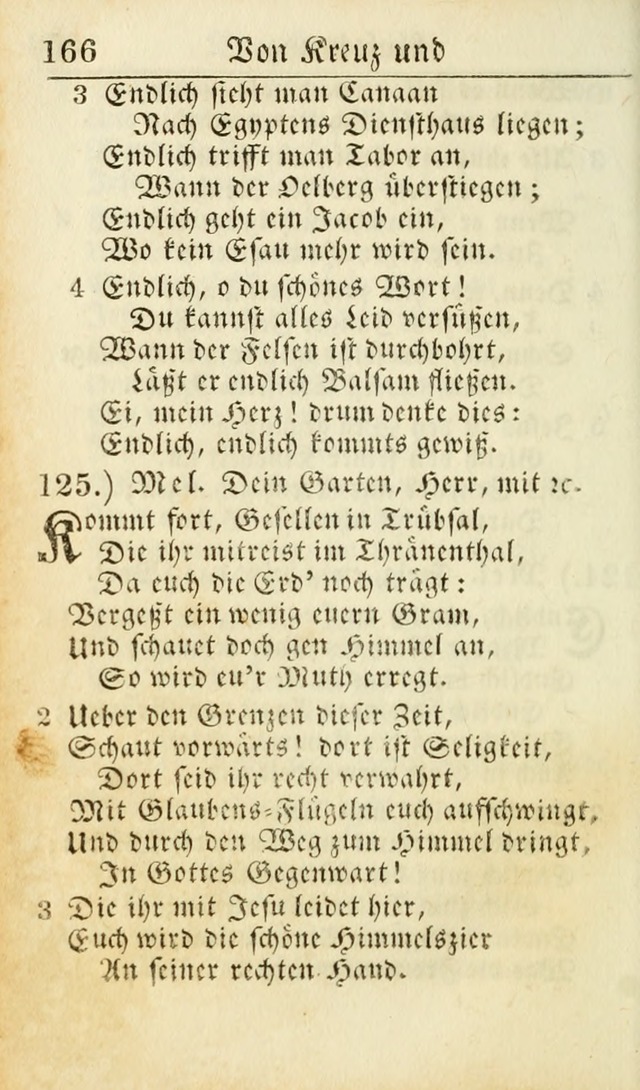 166 Von Kreuz und
3 Endlich sieht man Canaan
Nach Egyptens Diensthaus liegen;
Endlich trifft man Tabor an,
Wann der Oelberg überstiegen;
Endlich geht ein Jacob ein,
Wo kein Esau mehr wird sein.
4 Endlich, o du schönes Wort!
Du kannst alles Leid versüßen,
Wann der Felsen ist durchbohrt,
Läßt er endlich Balsam fließen.
Ei, mein Herz! drum denke dies:
Endlich, endlich kommts gewiß.
125.) Mel. Dein Garten, Herr, mit ꝛc.
Kommt fort, Gesellen in Trübsal,
Die ihr mitreist im Thränenthal,
Da euch die Erd' noch trägt:
Vergeßt ein wenig euern Gram,
Und schauet doch gen Himmel an,
So wird eu'r Muth erregt.
2 Ueber den Grenzen dieser Zeit,
Schaut vorwärts! dort ist Seligkeit,
Dort seid ihr recht verwahrt,
Mit Glaubens-Flügeln euch aufschwingt,
Und durch den Weg zum Himmel dringt,
In Gottes Gegenwart!
3 Die ihr mit Jesu leidet hier,
Euch wird die schöne Himmelszier
An seiner rechten Hand.